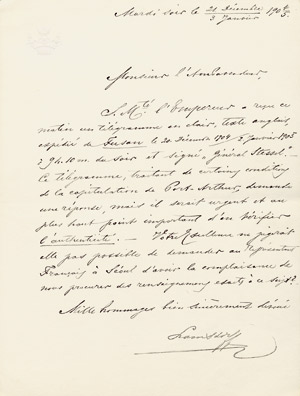 Mardi soir le 21 Décembre 1904/5.
3 Janvier
Monsieur l'Ambassadeur
S. M.té l'Empereur a reçu ce
matin un télégramme en clair, texte anglais,
expédié de Fusan le 20 Décembre 1904 2 Janvier 1905
à 9h.10 m. du soir et signé "Général Stessel".
Ce télégramme, traitant de certaines conditions
de la capitulation de Port-Arthur, demande
une réponse, mais il serait urgent et au
plus haut point important d'en vérifier
l'authenticité. — Votre Excellence ne jugerait
elle pas possible de demander au Représentant
Français à Séoul d'avoir la complaisance de
nous procurer des renseignements exacts à ce sujet?
Mille hommages bien sincèrement